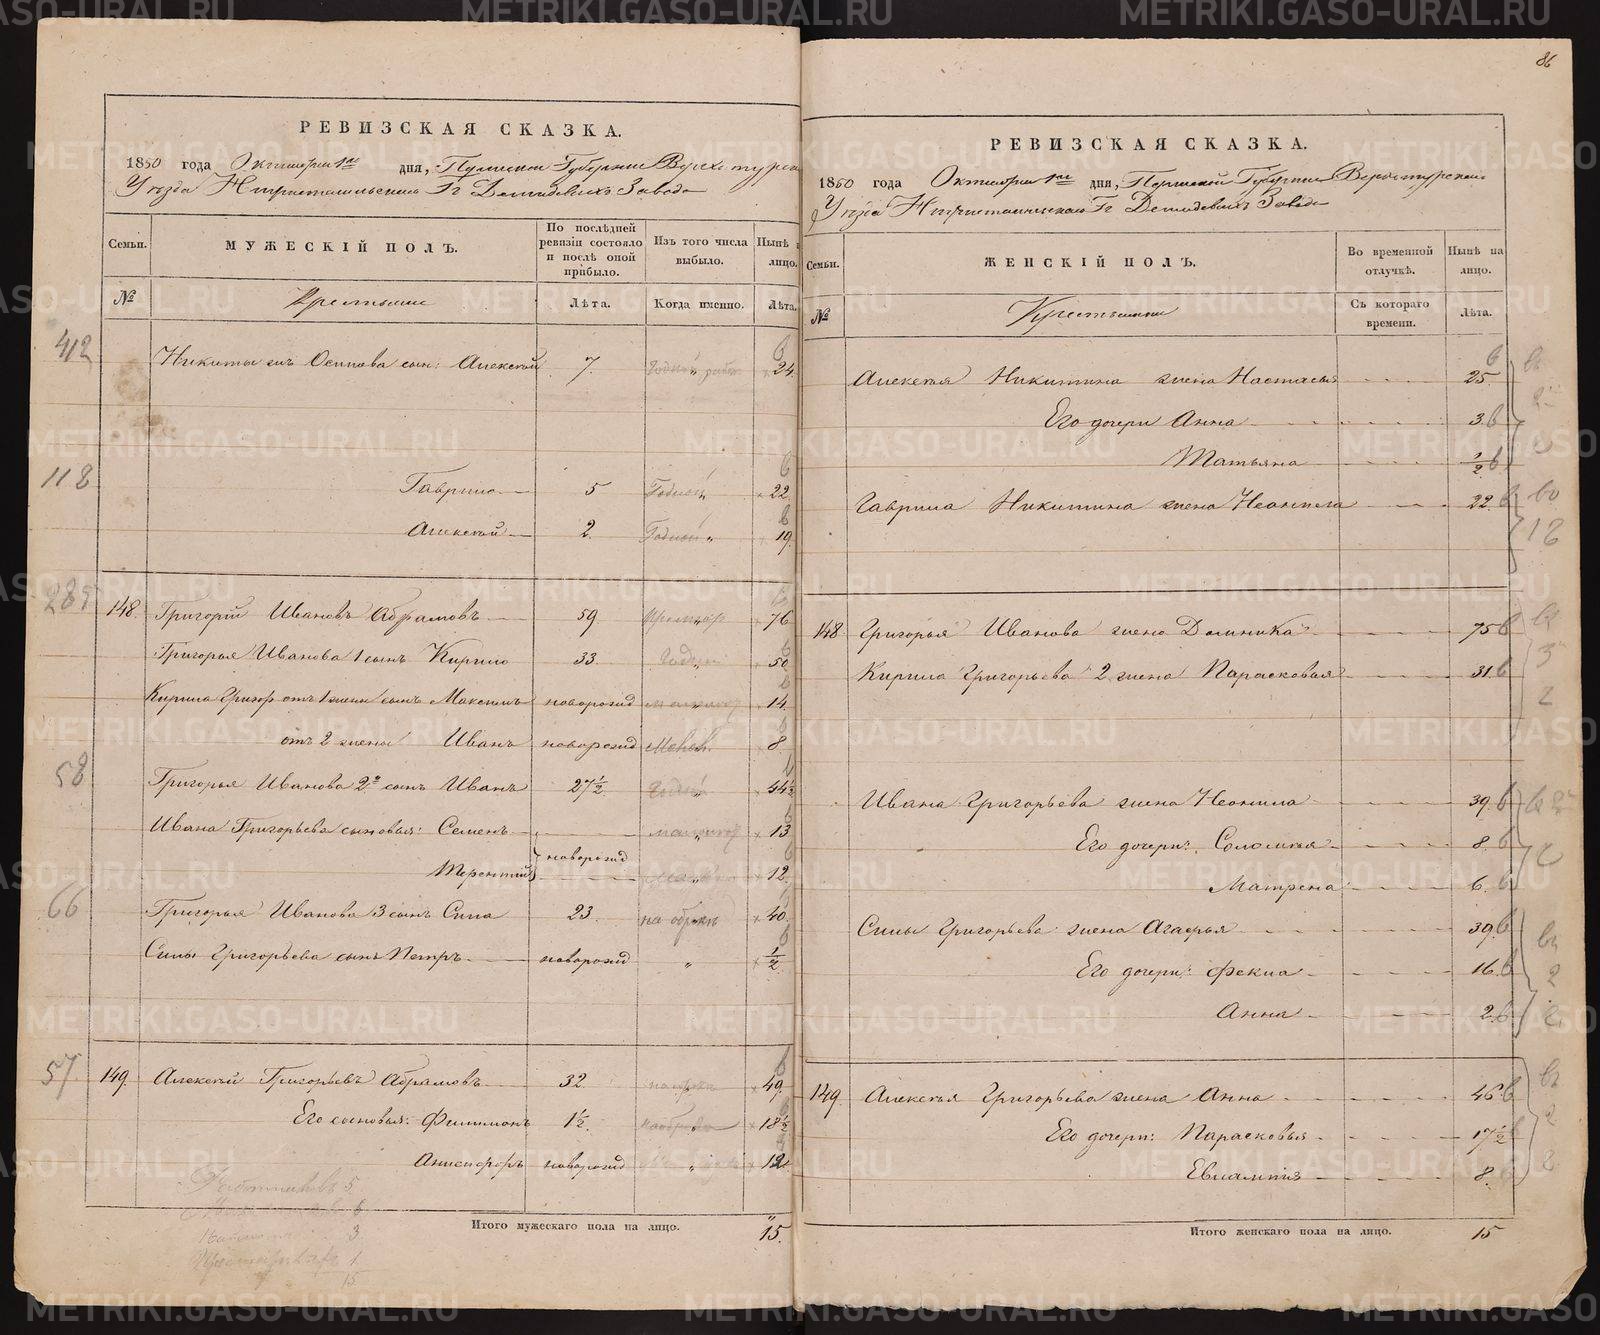 86
РЕВИЗСКАЯ СКАЗКА.
1850 года Октября 1го дня, Пермской Губернии Верхотурска
Уѣзда Нтристанскаго Гг Демидовыхъ Завода
Семьи.
МУЖЕСКІЙ ПОЛЪ.
По послѣдней ревизіи состояло и послѣ оной прибыло.
Изъ того числа выбыло.
Нынѣ на лицо.
№
Крестьяне
Лѣта.
Когда именно.
Лѣта.
412
Никиты жъ Осипова сын: Алексѣй 7. Годной раб 24
118
Гаврило 5 Годной 22
Алексѣй 2. Годной 19
289
148. Григорій Ивановъ Абрамовъ 59 престар 76
Григорья Иванова 1 сынъ Кирило 33. Годной 50
Кирила Григор отъ 1 жены сынъ Максимъ новорожд 14
отъ 2 жены Иванъ новорожд 8
58
Григорья Иванова 2й сынъ Иванъ 27½ Годной 44½
Ивана Григорьева сыновья: Семенъ 13
Терентій новорожд 12
66
Григорья Иванова 3 сынъ Сила 23. 40
Силы Григорьева сынъ Петръ новорожд " ½
57
149. Алексѣй Григорьевъ Абрамовъ 32 49
Его сыновья: Филимонъ 1½ 18½
Анисифоръ новорожд 12
Работниковъ 5
6
3
Престарѣлыхъ 1
15
Итого мужескаго пола на лицо. 15.
РЕВИЗСКАЯ СКАЗКА.
1850 года Октября 1го дня, Пермской Губерніи Верхотурскаго
Уѣзда Нтристанскаго Гг Демидовыхъ Завода
Семьи.
ЖЕНСКІЙ ПОЛЪ.
Во временной отлучкѣ.
Нынѣ на лицо.
№
Крестьянки
Съ котораго времени.
Лѣта.
Алексѣя Никитина жена Настасья 25
Его дочери Анна 3
Татьяна ½
Гаврила Никитина жена Неонила 22
148 Григорья Иванова жена Домника 75
Кирила Григорьева 2 жена Парасковья 31
Ивана Григорьева жена Неонила 39
Его дочери: Соломея 8
Матрена 6
Силы Григорьева жена Агафья 39
Его дочери: Фекла 16
Анна 2
149. Алексѣя Григорьева жена Анна 46
Его дочери: Парасковья 17½
Евлампия 8
Итого женскаго пола на лицо. 15
METRIKI.GASO-URAL.RU